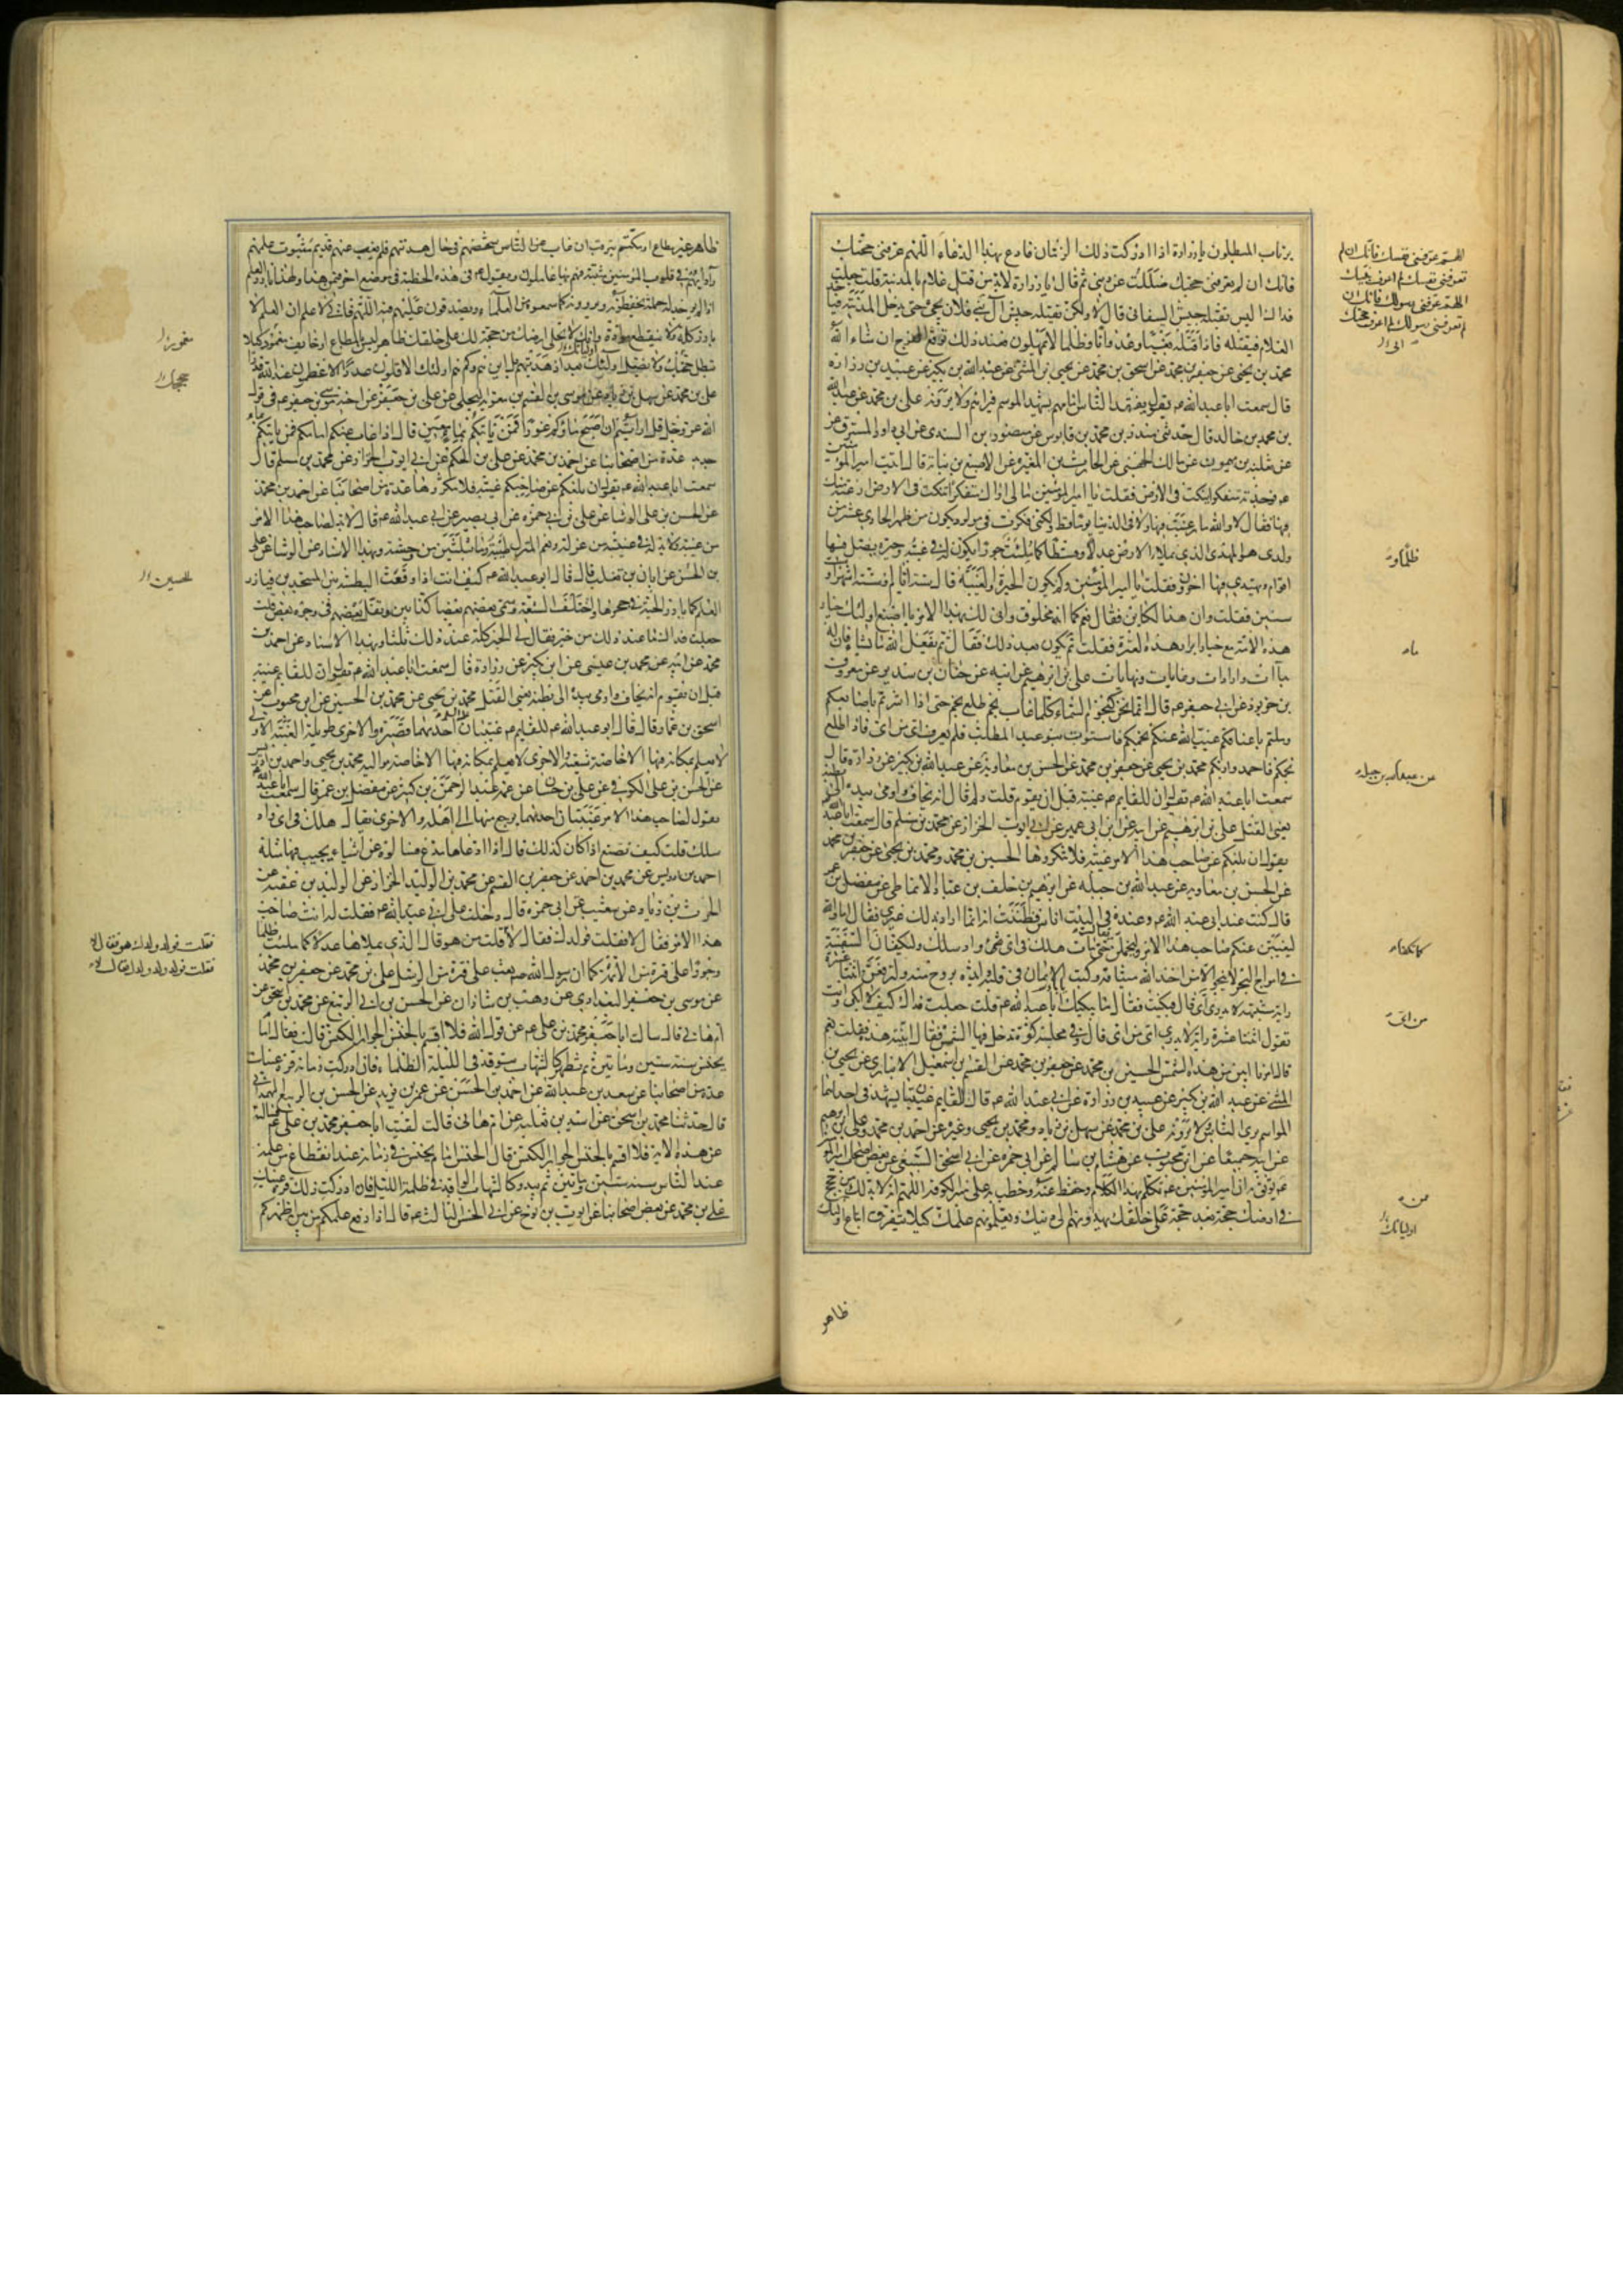 يرتاب المبطلون يا زرارة اذا ادركت ذلك الزمان فادع بهذا الدعاء اللهم عرفنى حجتك
فانك ان لم تعرفنى حجتك ضللت عن دينى ثم قال يا زرارة لابد من قتل غلام بالمدينة قلت جعلت
فداك اليس يقتله جيش السفيانى قال لا ولكن يقتله جيش آل بنى فلان يجئ حتى يدخل المدينة فياخذ
الغلام فيقتله فاذا قتله بغيا وعدوانا وظلما لا يمهلون فعند ذلك توقع الفرج ان شاء الله
محمد بن يحيى عن جعفر بن محمد عن اسحق بن محمد عن يحيى بن المثنى عن عبد الله بن بكير عن عبيد بن زرارة
قال سمعت ابا عبد الله ع يقول يفقد الناس امامهم يشهد الموسم فيراهم ولا يرونه على بن محمد عن عبد الله
بن محمد بن خالد قال حدثنى منذر بن محمد بن قابوس عن منصور بن السندى عن ابى داود المسترق عن
عن ثعلبة بن ميمون عن مالك الجهنى عن الحارث بن المغيرة عن الاصبغ بن نباتة قال اتيت امير المؤمنين
ع فوجدته متفكرا ينكت فى الارض فقلت يا امير المؤمنين ما لى اراك متفكرا تنكت فى الارض ارغبة منك
فيها فقال لا والله ما رغبت فيها ولا فى الدنيا يوما قط ولكنى فكرت فى مولود يكون من ظهرى الحادى عشر من
ولدى هو المهدى الذى يملأ الارض عدلا وقسطا كما ملئت جورا يكون له غيبة وحيرة يضل فيها
اقوام ويهتدى فيها اخرون فقلت يا امير المؤمنين وكم يكون الحيرة والغيبة قال ستة ايام او ستة اشهر او
سنين فقلت وان هذا لكاين فقال نعم كما انه مخلوق وانى لك بهذا الامر يا اصبغ اولئك خيار
هذه الامة مع خيار ابرار هذه العترة فقلت ثم يكون بعد ذلك فقال ثم يفعل الله ما يشاء فان له
بداءات وارادات وغايات ونهايات على بن ابراهيم عن ابيه عن حنان بن سدير عن معروف
بن خربوذ عن ابى جعفر ع قال انما نحن كنجوم السماء كلما غاب نجم طلع نجم حتى اذا اشرتم باصابعكم
وملتم باعناقكم غيب الله عنكم نجمكم فاستوت بنو عبد المطلب فلم يعرف اى من اى فاذا طلع
نجمكم فاحمدوا ربكم محمد بن يحيى عن جعفر بن محمد عن الحسن بن معاوية عن عبد الله بن بكير عن زرارة قال
سمعت ابا عبد الله ع يقول ان للقايم ع غيبة قبل ان يقوم قلت ولم قال انه يخاف واومى بيده الى بطنه
يعنى القتل على بن ابراهيم عن ابيه عن ابن ابى عمير عن ابى ايوب الخزاز عن محمد بن مسلم قال سمعت ابا عبد الله
يقول ان بلغكم عن صاحب هذا الامر غيبة فلا تنكروها الحسين بن محمد ومحمد بن يحيى عن جعفر بن محمد
عن الحسن بن معاوية عن عبد الله بن جبله عن ابرهيم بن خلف بن عباد الانماطى عن مفضل بن عمر
قال كنت عند ابى عبد الله ع وعنده فى البيت اناس فظننت انه انما اراد بذلك غيرى فقال اما والله
ليغيبن عنكم صاحب هذا الامر وليخملن حتى يقال مات هلك فى اى واد سلك ولتكفان كما تكفا السفينة
فى امواج البحر لا ينجو الا من اخذ الله ميثاقه وكتب الايمان فى قلبه وايده بروح منه ولترفعن اثنتا عشرة
راية مشتبهة لا يدرى اى من اى قال فبكيت فقال ما يبكيك يا ابا عبد الله فقلت جعلت فداك كيف لا ابكى وانت
تقول اثنتا عشرة راية لا يدرى اى من اى قال وفى مجلسه كوة تدخل فيها الشمس فقال ابينة هذه فقلت نعم
قال امرنا ابين من هذه الشمس الحسين بن محمد عن جعفر بن محمد عن القسم بن اسمعيل الانبارى عن يحيى بن
المثنى عن عبد الله بن بكير عن عبيد بن زرارة عن ابى عبد الله ع قال للقايم غيبتان يشهد فى احداهما
المواسم يرى الناس ولا يرونه على بن محمد عن سهل بن زياد ومحمد بن يحيى وغيره عن احمد بن محمد وعلى بن ابرهيم
عن ابيه جميعا عن ابن محبوب عن هشام بن سالم عن ابى حمزة عن ابى اسحق السبيعى عن بعض اصحاب امير المؤمنين
ع ممن يوثق به ان امير المؤمنين ع تكلم بهذا الكلام وحفظ عنه وخطب به على منبر الكوفة اللهم انه لا بد لك من حجج
فى ارضك حجة بعد حجة على خلقك يهدونهم الى دينك ويعلمونهم علمك كيلا يتفرق اتباع اوليائك
اللهم عرفنى نفسك فانك ان لم
تعرفنى نفسك لم اعرف نبيك
اللهم عرفنى رسولك فانك ان
لم تعرفنى رسولك لم اعرف حجتك
ظلما وجورا
عن عبد الله بن جبله
كما تكفاء
من اى
اوليائك
ظاهر
ظاهر غير مطاع او مكتتم يترقب ان غاب عن الناس شخصهم فى حال هدنتهم فلم يغب عنهم قديم مبثوث علمهم
وآدابهم فى قلوب المؤمنين مثبتة فهم بها عاملون ويقول ع فى هذه الخطبة فى موضع اخر فيمن هذا ولهذا يارز العلم
اذا لم يوجد له حملة يحفظونه ويروونه كما سمعوه من العلماء ويصدقون عليهم فيه اللهم فانى لاعلم ان العلم لا
يارز كله ولا ينقطع مواده وانك لا تخلى ارضك من حجة لك على خلقك ظاهر ليس بالمطاع او خايف مغمور كيلا
تبطل حجتك ولا يضل اوليائك بعد اذ هديتهم بل اين هم وكم هم اولئك الاقلون عددا الاعظمون عند الله قدرا
على بن محمد عن سهل بن زياد عن موسى بن القسم بن معوية البجلى عن على بن جعفر عن اخيه موسى بن جعفر ع فى قول
الله عز وجل قل ارايتم ان اصبح ماؤكم غورا فمن ياتيكم بماء معين قال اذا غاب عنكم امامكم فمن ياتيكم بامام
جديد عدة من اصحابنا عن احمد بن محمد عن على بن الحكم عن ابى ايوب الخزاز عن محمد بن مسلم قال
سمعت ابا عبد الله ع يقول ان بلغكم عن صاحبكم غيبة فلا تنكروها عدة من اصحابنا عن احمد بن محمد
عن الحسن بن على الوشا عن على بن ابى حمزه عن ابى بصير عن ابى عبد الله ع قال لا بد لصاحب هذا الامر
من غيبة ولا بد له فى غيبته من عزلة ونعم المنزل طيبة وما بثلثين من وحشة وبهذا الاسناد عن الوشا عن على
بن الحسن عن ابان بن تغلب قال قال ابو عبد الله ع كيف انت اذا وقعت البطشة بين المسجدين فيارز
العلم كما يارز الحية فى جحرها واختلفت الشيعة وسمى بعضهم بعضا كذابين وتفل بعضهم فى وجوه بعض قلت
جعلت فداك ما عند ذلك من خير فقال لى الخير كله عند ذلك ثلثا وبهذا الاسناد عن احمد بن
محمد عن ابيه عن محمد بن عيسى عن ابن بكير عن زرارة قال سمعت ابا عبد الله ع يقول ان للقايم غيبة
قبل ان يقوم انه يخاف واومى بيده الى بطنه يعنى القتل محمد بن يحيى عن محمد بن الحسين عن ابن محبوب عن
اسحق بن عمار قال قال ابو عبد الله ع للقايم ع غيبتان احديهما قصيرة والاخرى طويلة الغيبة الاولى
لا يعلم بمكانه فيها الا خاصة شيعته والاخرى لا يعلم بمكانه فيها الا خاصة مواليه محمد بن يحيى واحمد بن ادريس
عن الحسن بن على الكوفى عن على بن حسان عن عمه عبد الرحمن بن كثير عن مفضل بن عمر قال سمعت ابا عبد الله ع
يقول لصاحب هذا الامر غيبتان احديهما يرجع منها الى اهله والاخرى يقال هلك فى اى واد
سلك قلت كيف نصنع اذا كان كذلك قال اذا ادعاها مدع فسالوه عن اشياء يجيب فيها مثله
احمد بن ادريس عن محمد بن احمد عن جعفر بن القسم عن محمد بن الوليد الخزاز عن الوليد بن عقبه عن
الحرث بن زياد عن شعيب عن ابى حمزه قال دخلت على ابى عبد الله ع فقلت له انت صاحب
هذا الامر فقال لا فقلت فولدك فقال لا قلت من هو قال الذى يملاها عدلا كما ملئت ظلما
وجورا على فترة من الائمة كما ان رسول الله ص بعث على فترة من الرسل على بن محمد عن جعفر بن محمد
عن موسى بن جعفر البغدادى عن وهب بن شاذان عن الحسن بن ابى الربيع عن محمد بن اسحق عن
ام هانى قالت سالت ابا جعفر محمد بن على ع عن قول الله فلا اقسم بالخنس الجوار الكنس قالت فقال امام
يخنس سنة ستين وماتين ثم يظهر كالشهاب يتوقد فى الليلة الظلماء فان ادركت زمانه قرت عينك
عدة من اصحابنا عن سعد بن عبد الله عن احمد بن الحسن عن عمر بن يزيد عن الحسن بن الربيع الهمدانى
قال حدثنا محمد بن اسحق عن اسيد بن ثعلبة عن ام هانى قالت لقيت ابا جعفر محمد بن على ع فسالته
عن هذه الاية فلا اقسم بالخنس الجوار الكنس قال الخنس امام يخنس فى زمانه عند انقطاع من علمه
عند الناس سنة ستين وماتين ثم يبدو كالشهاب الواقد فى ظلمة الليل فان ادركت ذلك قرت عينك
على بن محمد عن بعض اصحابنا عن ايوب بن نوح عن ابى الحسن الثالث ع قال اذا رفع علمكم من بين اظهركم
مغمور
حججك
الحسين
فقلت فولد ولدك هو فقال لا
فقلت فولد ولد ولدك فقال لا